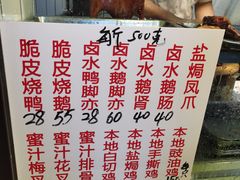 每斤500克
脆皮烧鸭
28
脆皮烧鹅
55
卤水鸭脚亦
28
卤水鹅脚亦
60
卤水鹅肾
40
卤水鹅肠
40
盐焗凤爪
蜜汁梅叉
蜜汁花叉
蜜汁排骨
本地白切鸡
本地盐焗鸡
本地手撕鸡
本地豉油鸡